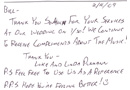 8/14/09
Bill-
Thank you so much for your services
at our wedding on 1/30! We continue
to receive compliments about the music!
Thank you-
Luke and Linda
P.S. Feel free to use us as a reference
PPS Hope you're feeling better!